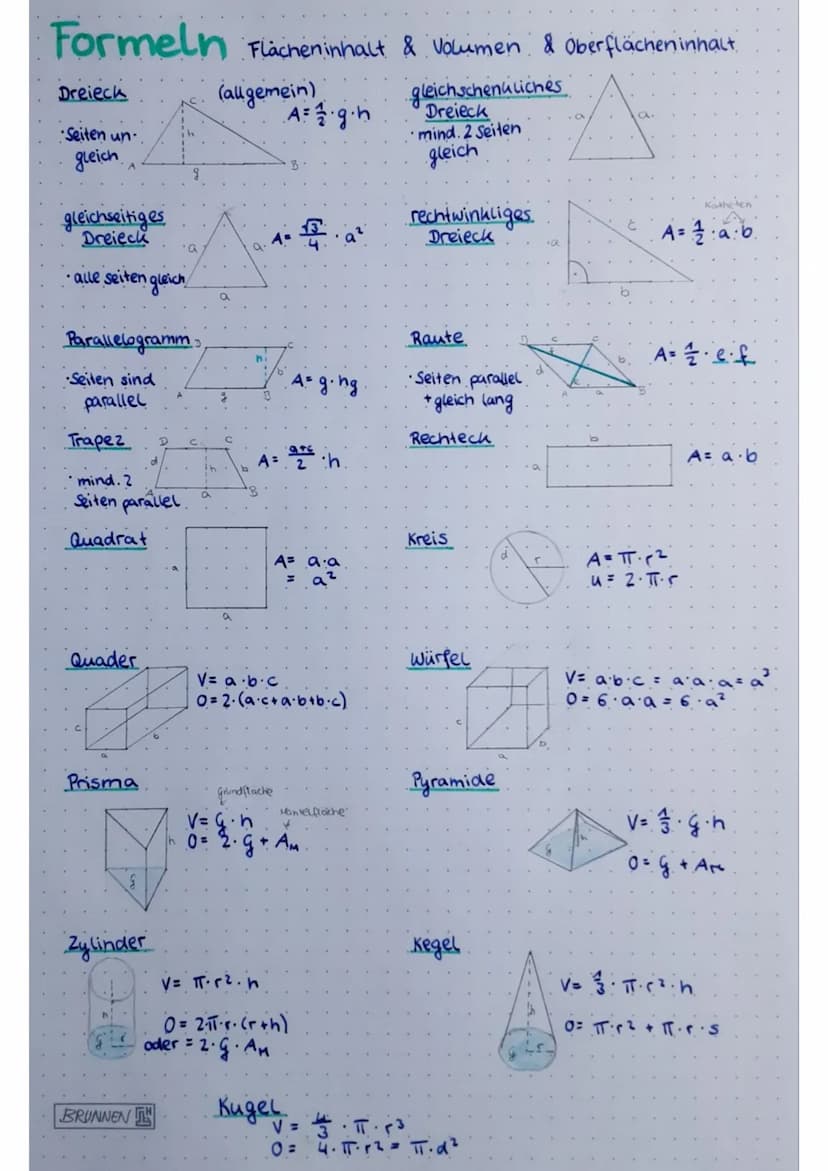 Formeln Flächeninhalt & Volumen & Oberflächeninhalt
Dreieck (allgemein)
A = 1/2 · g · h
· Seiten un-
gleich
C
h
A
g
B
gleichschenkliches
Dreieck
· mind. 2 Seiten
gleich
a
a
gleichseitiges
Dreieck
· alle Seiten gleich
a
a
a
A = √3/4 · a²
rechtwinkliges
Dreieck
a
c
b
Katheten
A = 1/2 · a · b
Parallelogramm
· Seiten sind
parallel
D
C
h
b
A
g
B
A = g · hg
Raute
· Seiten parallel
+ gleich lang
D
c
C
f
b
d
e
A
a
B
A = 1/2 · e · f
Trapez
· mind. 2
Seiten parallel
D
c
C
d
h
b
A
a
B
A = a+c/2 · h
Rechteck
b
a
A = a · b
Quadrat
a
a
A = a · a
= a²
Kreis
d
r
A = π · r²
u = 2 · π · r
Quader
c
a
b
V = a · b · c
O = 2 · (a · c + a · b + b · c)
Würfel
c
a
b
V = a · b · c = a · a · a = a³
O = 6 · a · a = 6 · a²
Prisma
h
g
Grundfläche
V = G · h
Mantelfläche
O = 2 · G + AM
Pyramide
h
g
V = 1/3 · G · h
O = G + AM
Zylinder
h
g
r
V = π · r² · h
O = 2π · r · (r + h)
oder = 2 · G · AM
Kegel
h
g
r
V = 1/3 · π · r² · h
O = π · r² + π · r · s
BRUNNEN
Kugel
V = 4/3 · π · r³
O = 4 · π · r² = π · d²